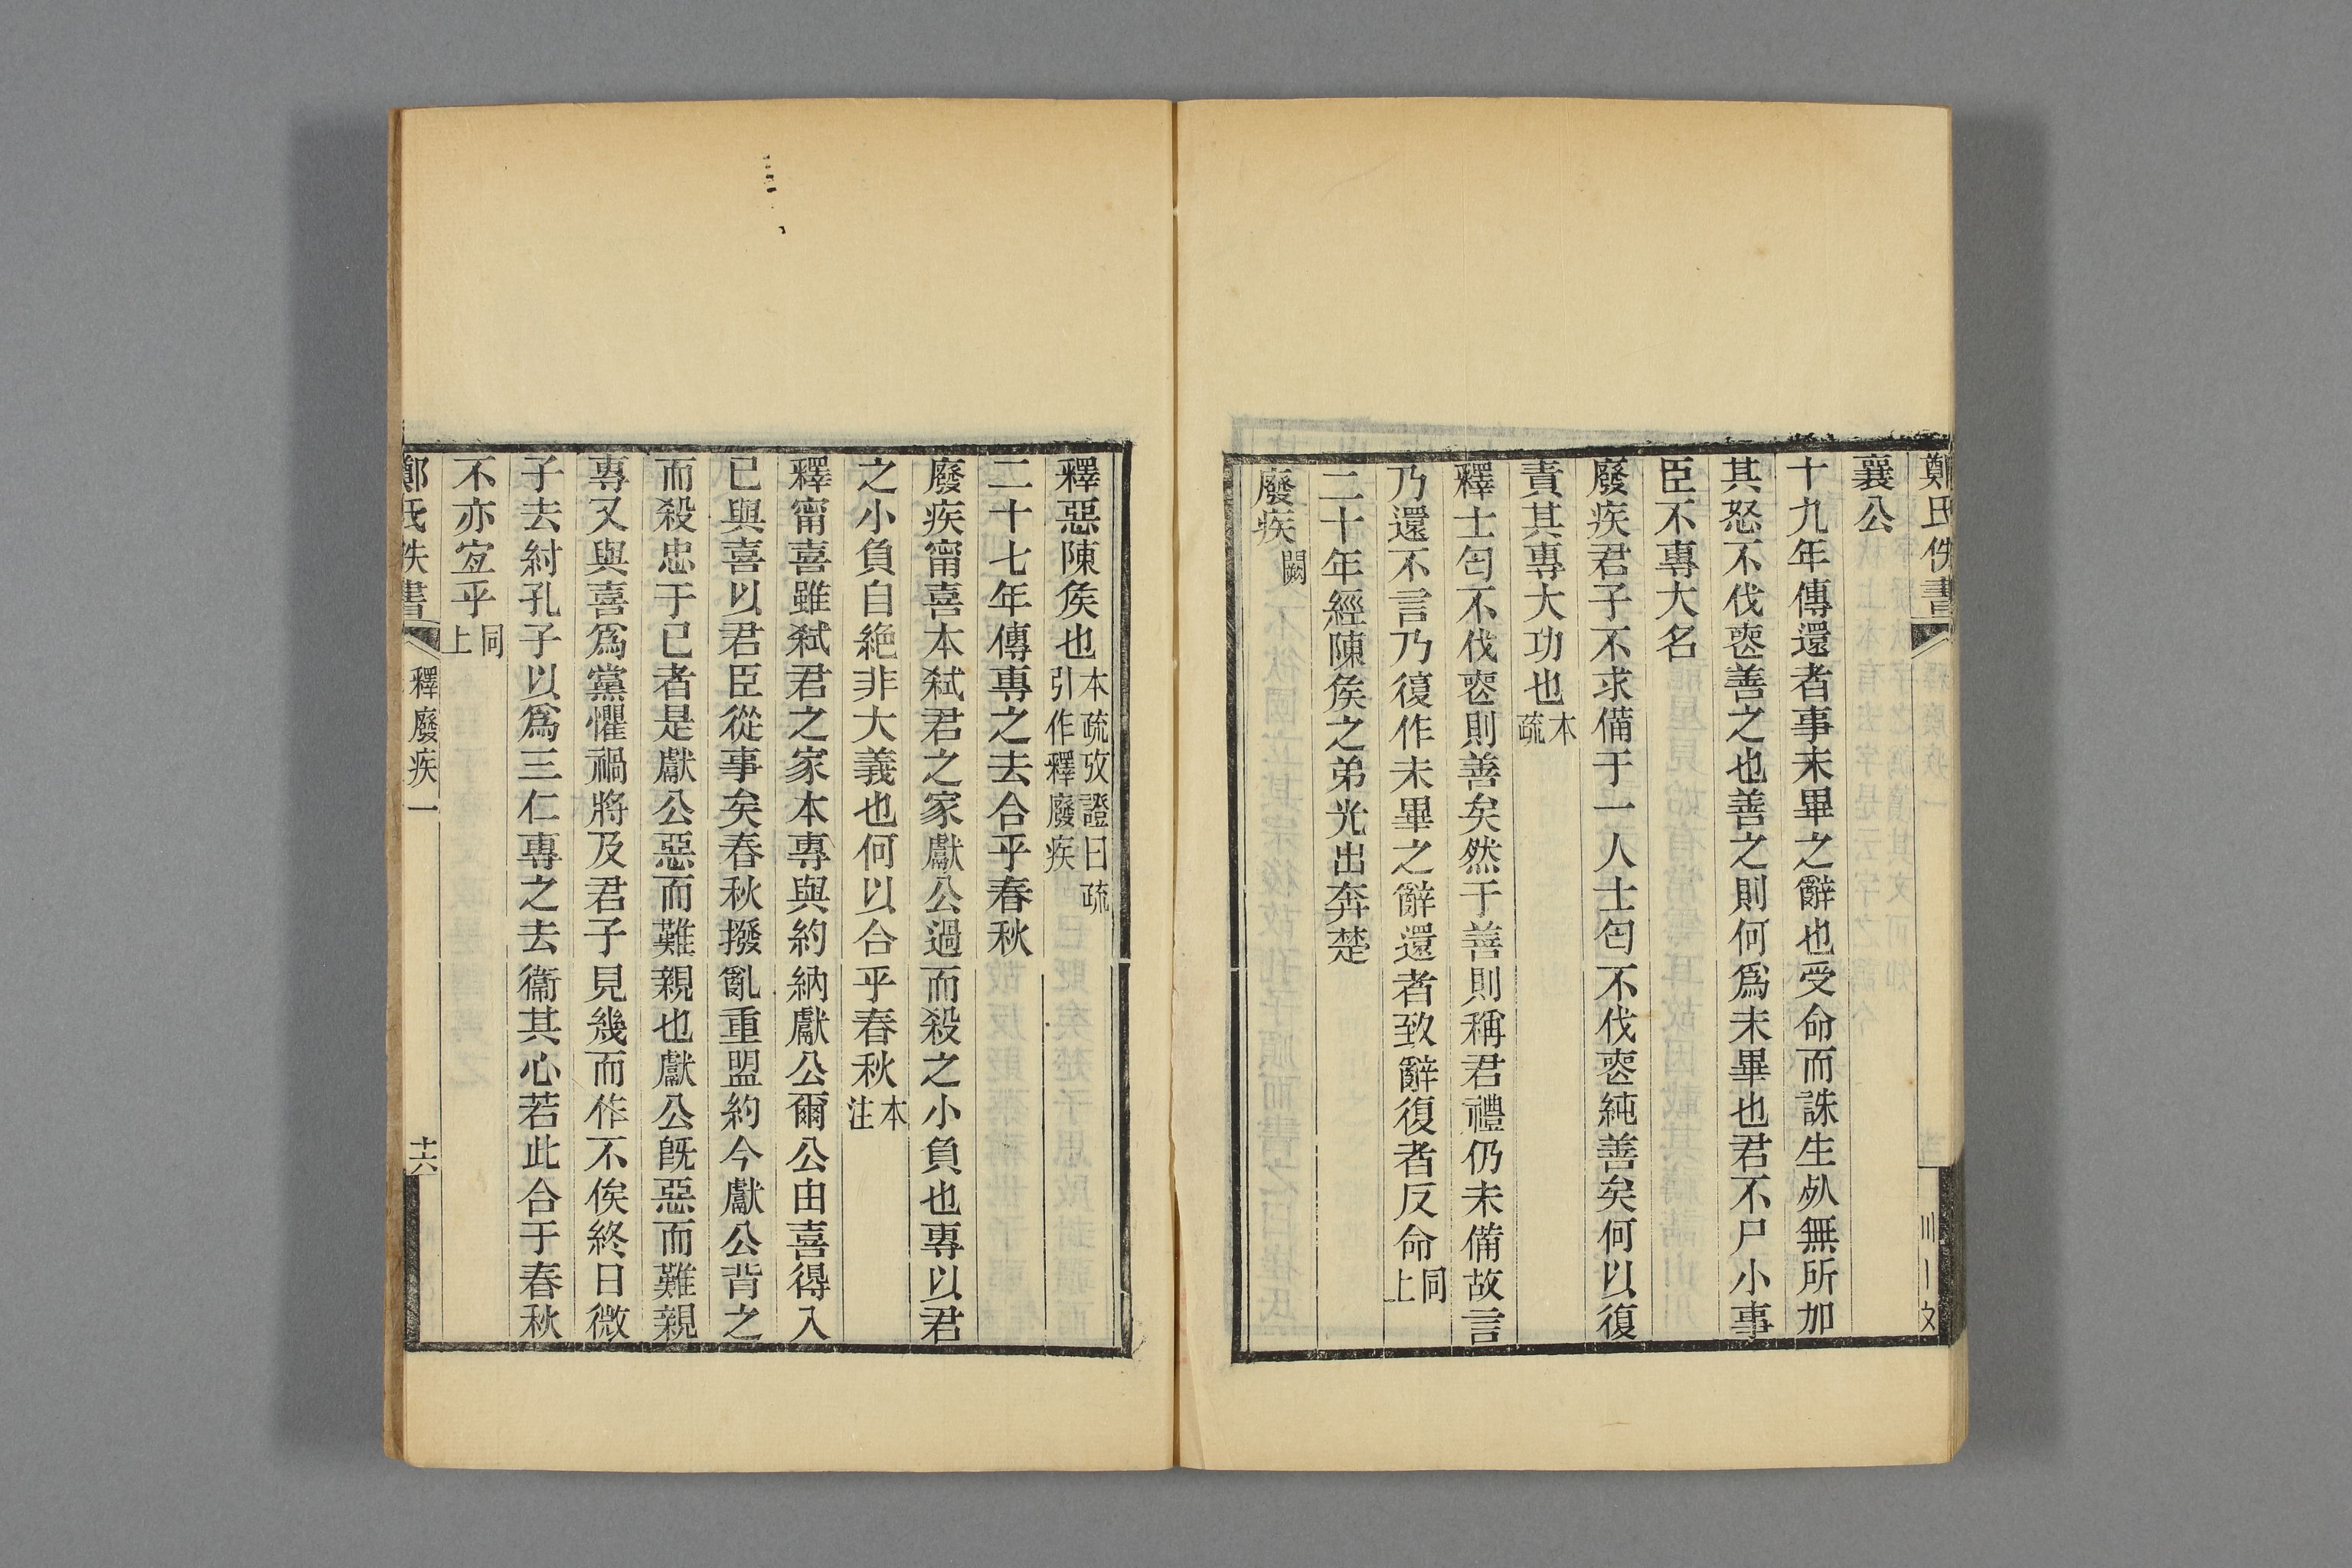 鄭氏佚書
襄公
十九年傳還者事未畢之辭也受命而誅生𣦸無所加
其怒不伐䘮善之也善之則何爲未畢也君不尸小事
臣不專大名
廢疾君子不求備于一人士匄不伐䘮純善矣何以復
責其專大功也本疏
釋士匄不伐䘮則善矣然于善則稱君禮仍未備故言
乃還不言乃復作未畢之辭還者致辭復者反命同上
二十年經陳矦之弟光出奔楚
廢疾闕
釋惡陳矦也本疏攷證曰疏引作釋廢疾
二十七年傳專之去合乎春秋
廢疾甯喜本弑君之家獻公過而殺之小負也專以君
之小負自絕非大義也何以合乎春秋本注
釋甯喜雖弑君之家本專與約納獻公爾公由喜得入
已與喜以君臣從事矣春秋撥亂重盟約今獻公背之
而殺忠于已者是獻公惡而難親也獻公旣惡而難親
專又與喜爲黨懼禍將及君子見幾而作不俟終日微
子去紂孔子以爲三仁專之去衞其心若此合于春秋
不亦宐乎同上
鄭氏佚書 釋廢疾一 十六